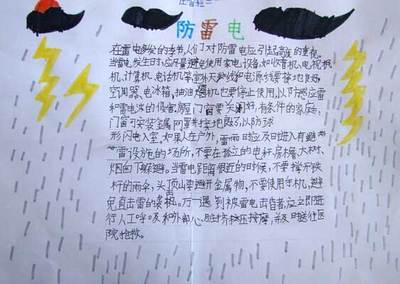 防雷电
在雷电多发的季节，人们对防雷电应引起高度的重视。
当雷电发生时，应尽量避免使用家电设备，如收音机、电视机、
计算机、电话机等室外天线和电源线要接地良好
空调器、电冰箱、抽油烟机也要停止使用，以防感应雷
和雷电波的侵害，门窗要关闭好，有条件的家庭，
门窗可安装金属网罩并接地良好，以防球
形闪电入室。如果人在户外，雷雨时应及时进入有避
雷设施的场所，不要在孤立的电杆、房檐、大树、
烟囱下躲避。当雷电距离很近的时候，不要撑开铁
杆的雨伞，头顶上要避开金属物，不要使用手机，避
免直击雷的袭击。万一遇到被雷电击昏者，应立即进行
人工呼吸和外部心脏挤压按摩，并及时送往医
院抢救。